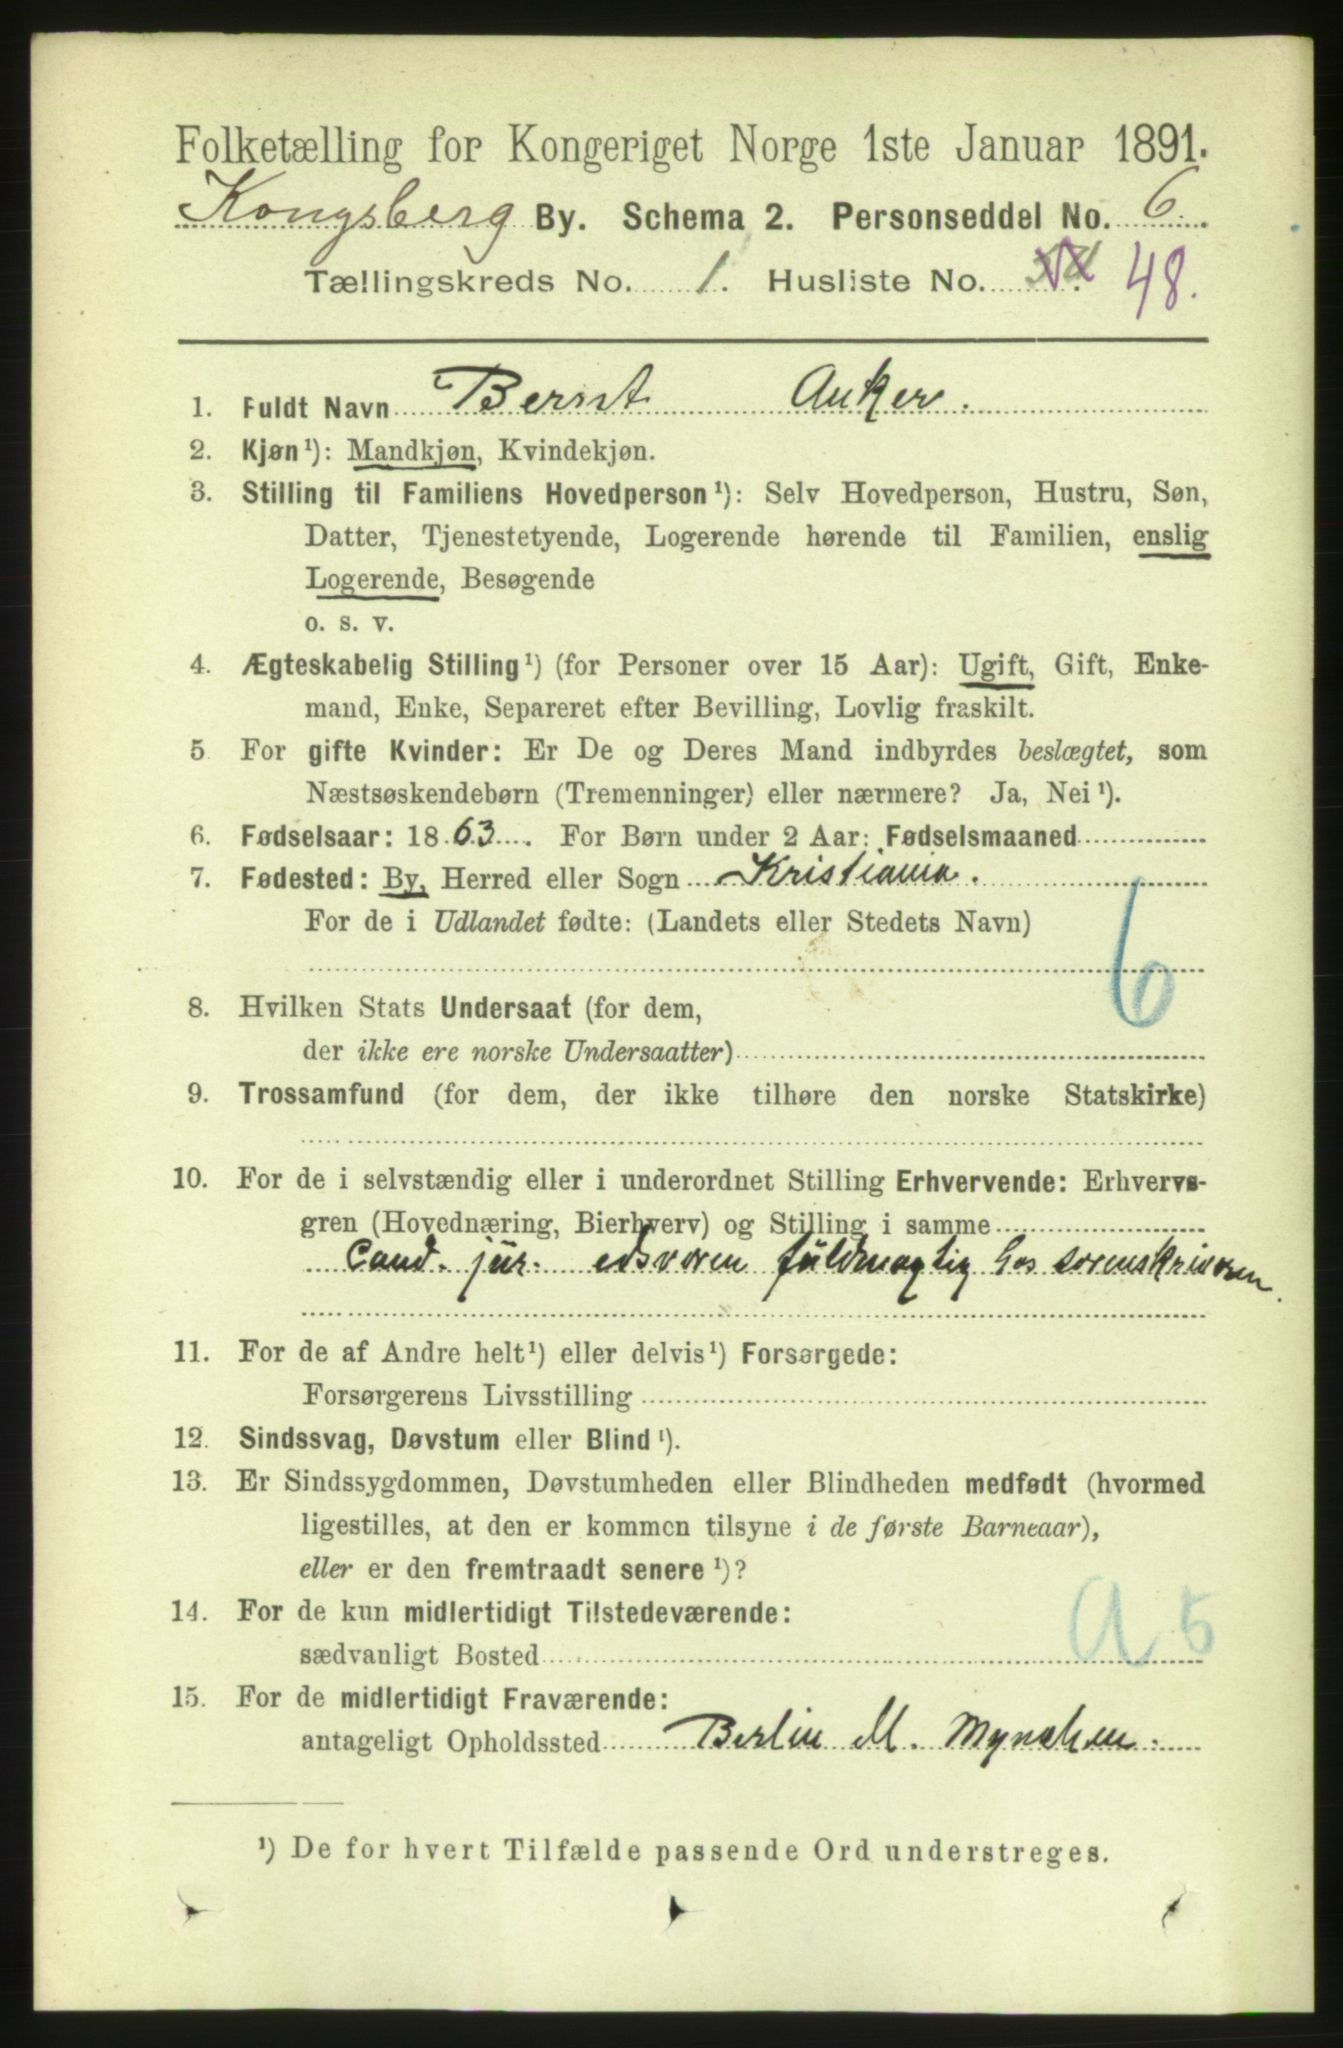 Folketælling for Kongeriget Norge 1ste Januar 1891.
Kongsberg By. Schema 2. Personseddel No. 6.
Tællingskreds No. 1. Husliste No. 48.
1. Fuldt Navn Bernt Anker.
2. Kjøn ¹): Mandkjøn, Kvindekjøn.
3. Stilling til Familiens Hovedperson ¹): Selv Hovedperson, Hustru, Søn,
Datter, Tjenestetyende, Logerende hørende til Familien, enslig
Logerende, Besøgende
o. s. v.
4. Ægteskabelig Stilling ¹) (for Personer over 15 Aar): Ugift, Gift, Enke-
mand, Enke, Separeret efter Bevilling, Lovlig fraskilt.
5 For gifte Kvinder: Er De og Deres Mand indbyrdes beslægtet, som
Næstsøskendebørn (Tremenninger) eller nærmere? Ja, Nei ¹).
6. Fødselsaar: 1863. For Børn under 2 Aar: Fødselsmaaned
7. Fødested: By, Herred eller Sogn Kristiania.
For de i Udlandet fødte: (Landets eller Stedets Navn)
6
8. Hvilken Stats Undersaat (for dem,
der ikke ere norske Undersaatter)
9. Trossamfund (for dem, der ikke tilhøre den norske Statskirke)
10. For de i selvstændig eller i underordnet Stilling Erhvervende: Erhvervs-
gren (Hovednæring, Bierhverv) og Stilling i samme
Cand. jur. edsvoren fuldmægtig hos sorenskriveren.
11. For de af Andre helt ¹) eller delvis ¹) Forsørgede:
Forsørgerens Livsstilling
12. Sindssvag, Døvstum eller Blind ¹).
13. Er Sindssygdommen, Døvstumheden eller Blindheden medfødt (hvormed
ligestilles, at den er kommen tilsyne i de første Barneaar),
eller er den fremtraadt senere ¹)?
14. For de kun midlertidigt Tilstedeværende:
sædvanligt Bosted
a 5
15. For de midlertidigt Fraværende:
antageligt Opholdssted Berlin M. Mynchen.
¹) De for hvert Tilfælde passende Ord understreges.